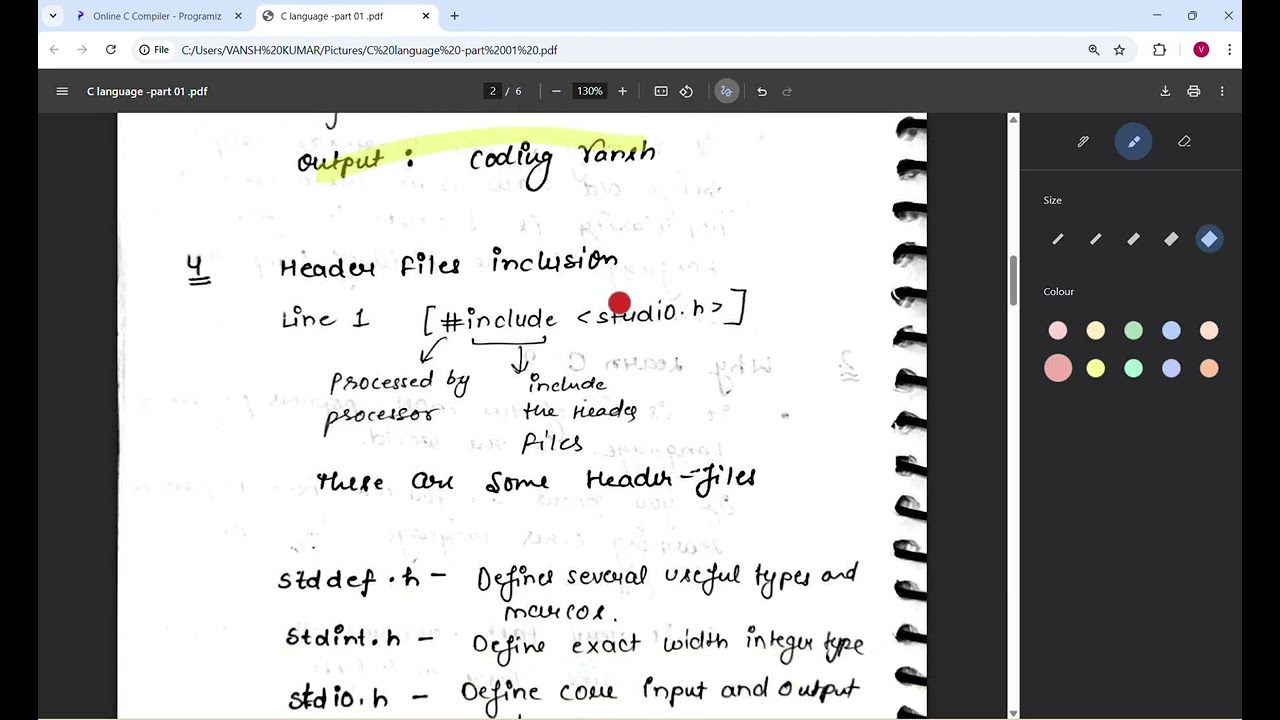 Online C Compiler - Programiz
C language -part 01 .pdf
File
C:/Users/VANSH%20KUMAR/Pictures/C%20language%20-part%2001%20.pdf
V
C language -part 01 .pdf
2 / 6
130%
output : Coding Vansh
4 Header files inclusion
Line 1 [#include <studio.h>]
Processed by include
processor the Header
files
These are some Header-files
stddef.h - Defines several useful types and
marcos.
Stdint.h - Define exact width integer type
stdio.h - Define core input and output
Size
Colour